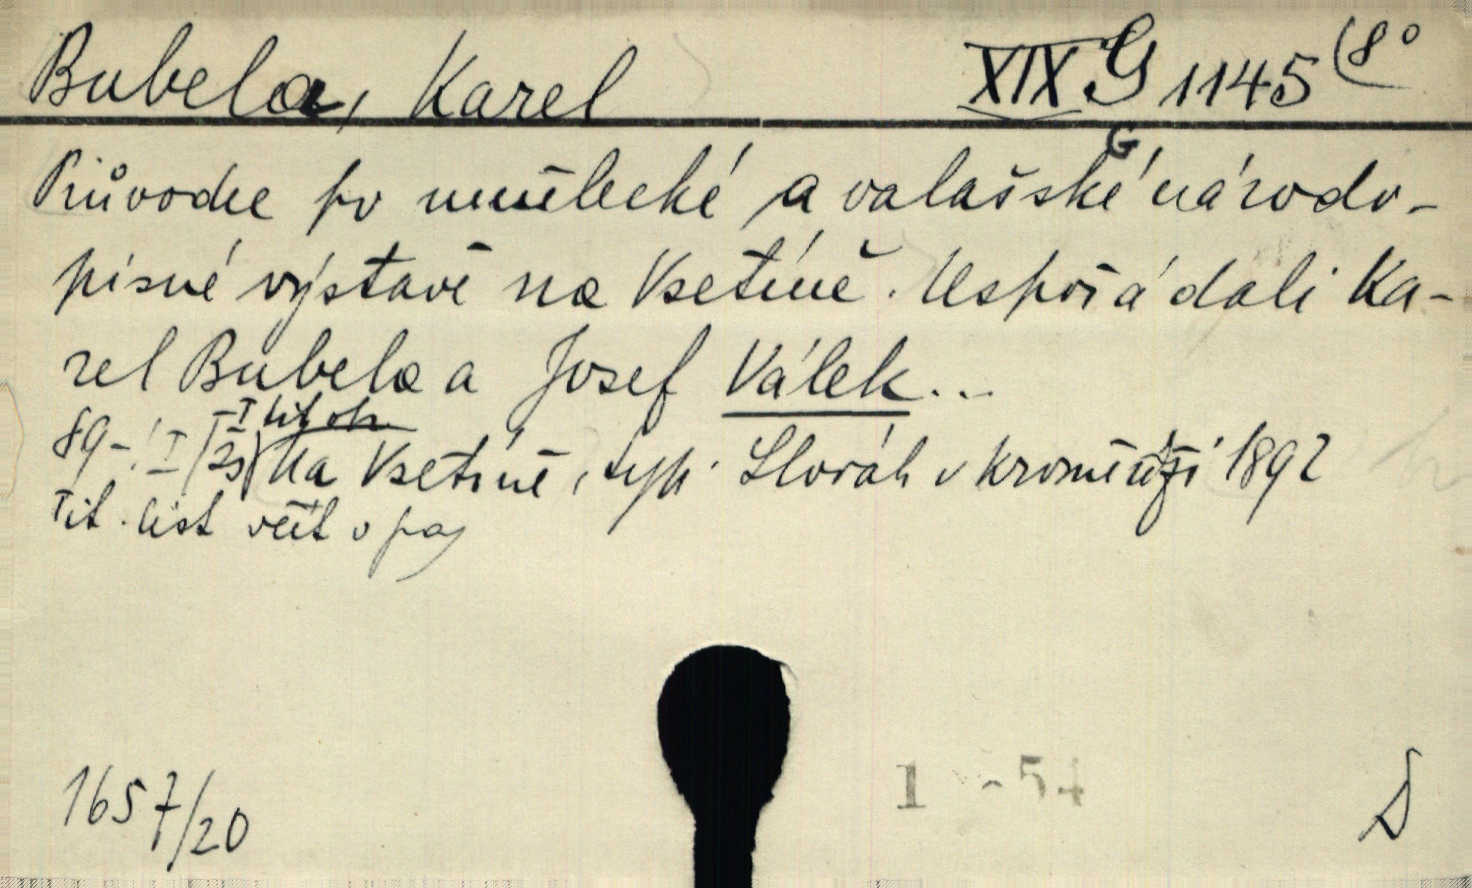 Bubela, Karel XIX G 1145 (8°
G
Průvodce po umělecké a valašské národo-
pisné výstavě na Vsetíně. Uspořádali Ka-
rel Bubela a Josef Válek...
I tit obr
89-, I (2s) Na Vsetíně, typ. Slovák v Kroměříži 1892
Tit. list včít v pag
1657/20 1 - 54